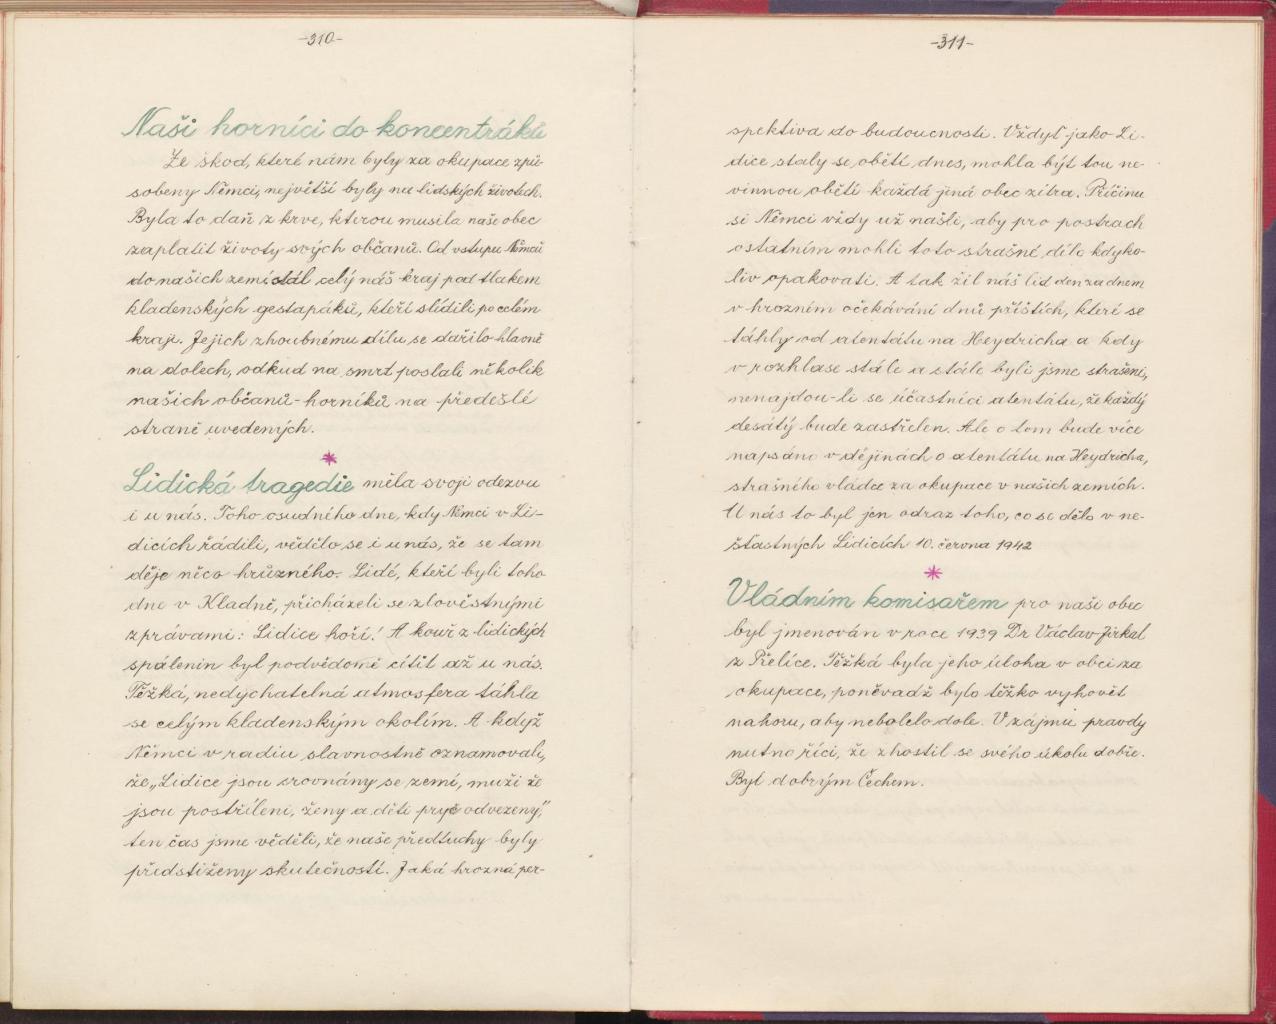 -310-
Naši horníci do koncentráků
Ze škod, které nám byly za okupace způ-
sobeny Němci, největší byly na lidských životech.
Byla to daň z krve, kterou musila naše obec
zaplatit životy svých občanů. Od vstupu Němců
do našich zemí stál celý náš kraj pod tlakem
kladenských gestapáků, kteří slídili po celém
kraji. Jejich zhoubnému dílu se dařilo hlavně
na dolech, odkud na smrt poslali několik
našich občanů-horníků na předešlé
straně uvedených.
Lidická tragedie měla svoji odezvu
i u nás. Toho osudného dne, kdy Němci v Li-
dicích řádili, vědělo se i u nás, že se tam
děje něco hrůzného. Lidé, kteří byli toho
dne v Kladně, přicházeli se zlověstnými
zprávami: Lidice hoří! A kouř z lidických
spálenin byl podvědomě cítit až u nás.
Těžká, nedýchatelná atmosfera táhla
se celým kladenským okolím. A když
Němci v radiu slavnostně oznamovali,
že „Lidice jsou srovnány se zemí, muži že
jsou postříleni, ženy a děti pryč odvezeny",
ten čas jsme věděli, že naše předtuchy byly
předstiženy skutečností. Jaká hrozná per-
-311-
spektiva do budoucnosti. Vždyť jako Li-
dice staly se obětí dnes, mohla být tou ne-
vinnou obětí každá jiná obec zítra. Příčinu
si Němci vždy už našli, aby pro postrach
ostatním mohli toto strašné dílo kdyko-
liv opakovati. A tak žil náš lid den za dnem
v hrozném očekávání dnů příštích, které se
táhly od atentátu na Heydricha a kdy
v rozhlase stále a stále byli jsme strašeni,
nenajdou-li se účastníci atentátu, že každý
desátý bude zastřelen. Ale o tom bude více
napsáno v dějinách o atentátu na Heydricha,
strašného vládce za okupace v našich zemích.
U nás to byl jen odraz toho, co se dělo v ne-
šťastných Lidicích 10. června 1942
Vládním komisařem pro naši obec
byl jmenován v roce 1939 Dr Václav Jirkal
z Přelíce. Těžká byla jeho úloha v obci za
okupace, poněvadž bylo těžko vyhovět
nahoru, aby nebolelo dole. V zájmu pravdy
nutno říci, že zhostil se svého úkolu dobře.
Byl dobrým Čechem.